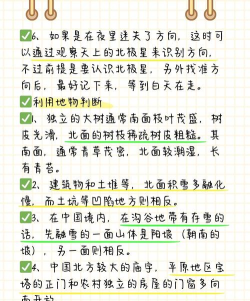 6、如果是在夜里迷失了方向，这时可
以通过观察天上的北极星来识别方向，
不过前提是要认识北极星，另外找准方
向后，最好记下来，等到白天在走。
利用地物判断
1、独立的大树通常南面枝叶茂盛，树
皮光滑，北面的树枝稀疏树皮粗糙。其
南面，通常青草茂密，北面较潮湿，长
有青苔。
2、建筑物和土堆等，北面积雪多融化
慢，而土坑等凹陷地方则相反。
3、在中国境内，在沟谷地带有存雪的
话，先融雪的一面山体是阳坡（朝南的
坡），另一面则相反。
4、中国北方较大的庙宇，平原地区宝
塔的正门和农村独立的房屋的门窗多向
南开放